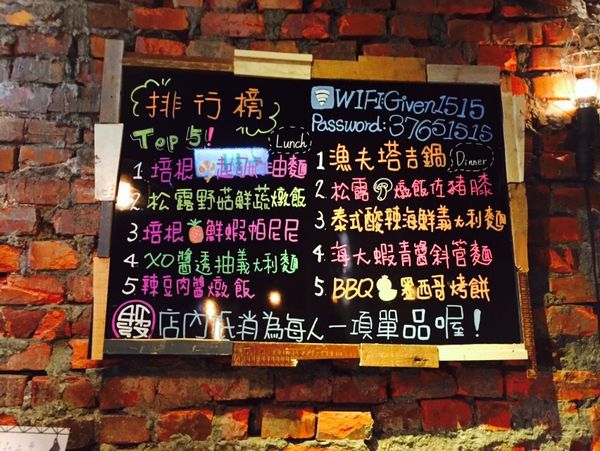 排行榜
Top 5!
Lunch
1 培根 油麵
2 松露野菇鮮蔬燉飯
3 培根 鮮蝦帕尼尼
4 XO醬透抽義大利麵
5 辣豆肉醬燉飯
WIFI:Given1515
Password:37651515
1 漁夫塔吉鍋 Dinner
2 松露 燉飯佐豬膝
3 泰式酸辣海鮮義大利麵
4 海大蝦青醬斜管麵
5. BBQ 墨西哥烤餅
店內低消為每人一項單品喔!